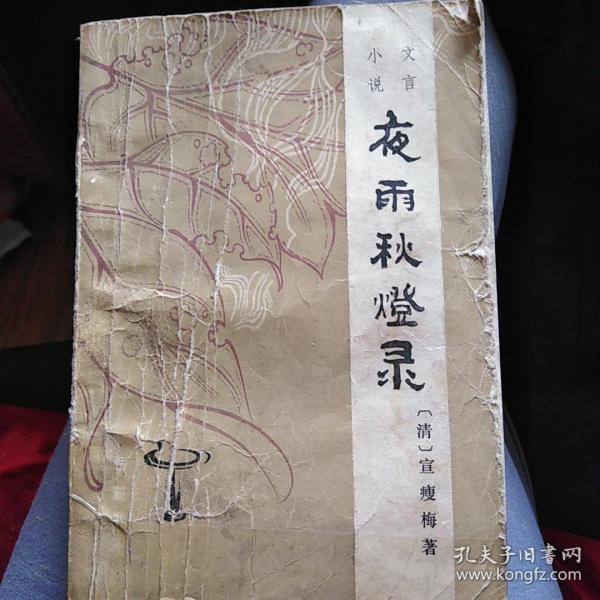 文言
小说
夜雨秋燈录
〔清〕宣瘦梅著
孔夫子旧书网
www.kongfz.com